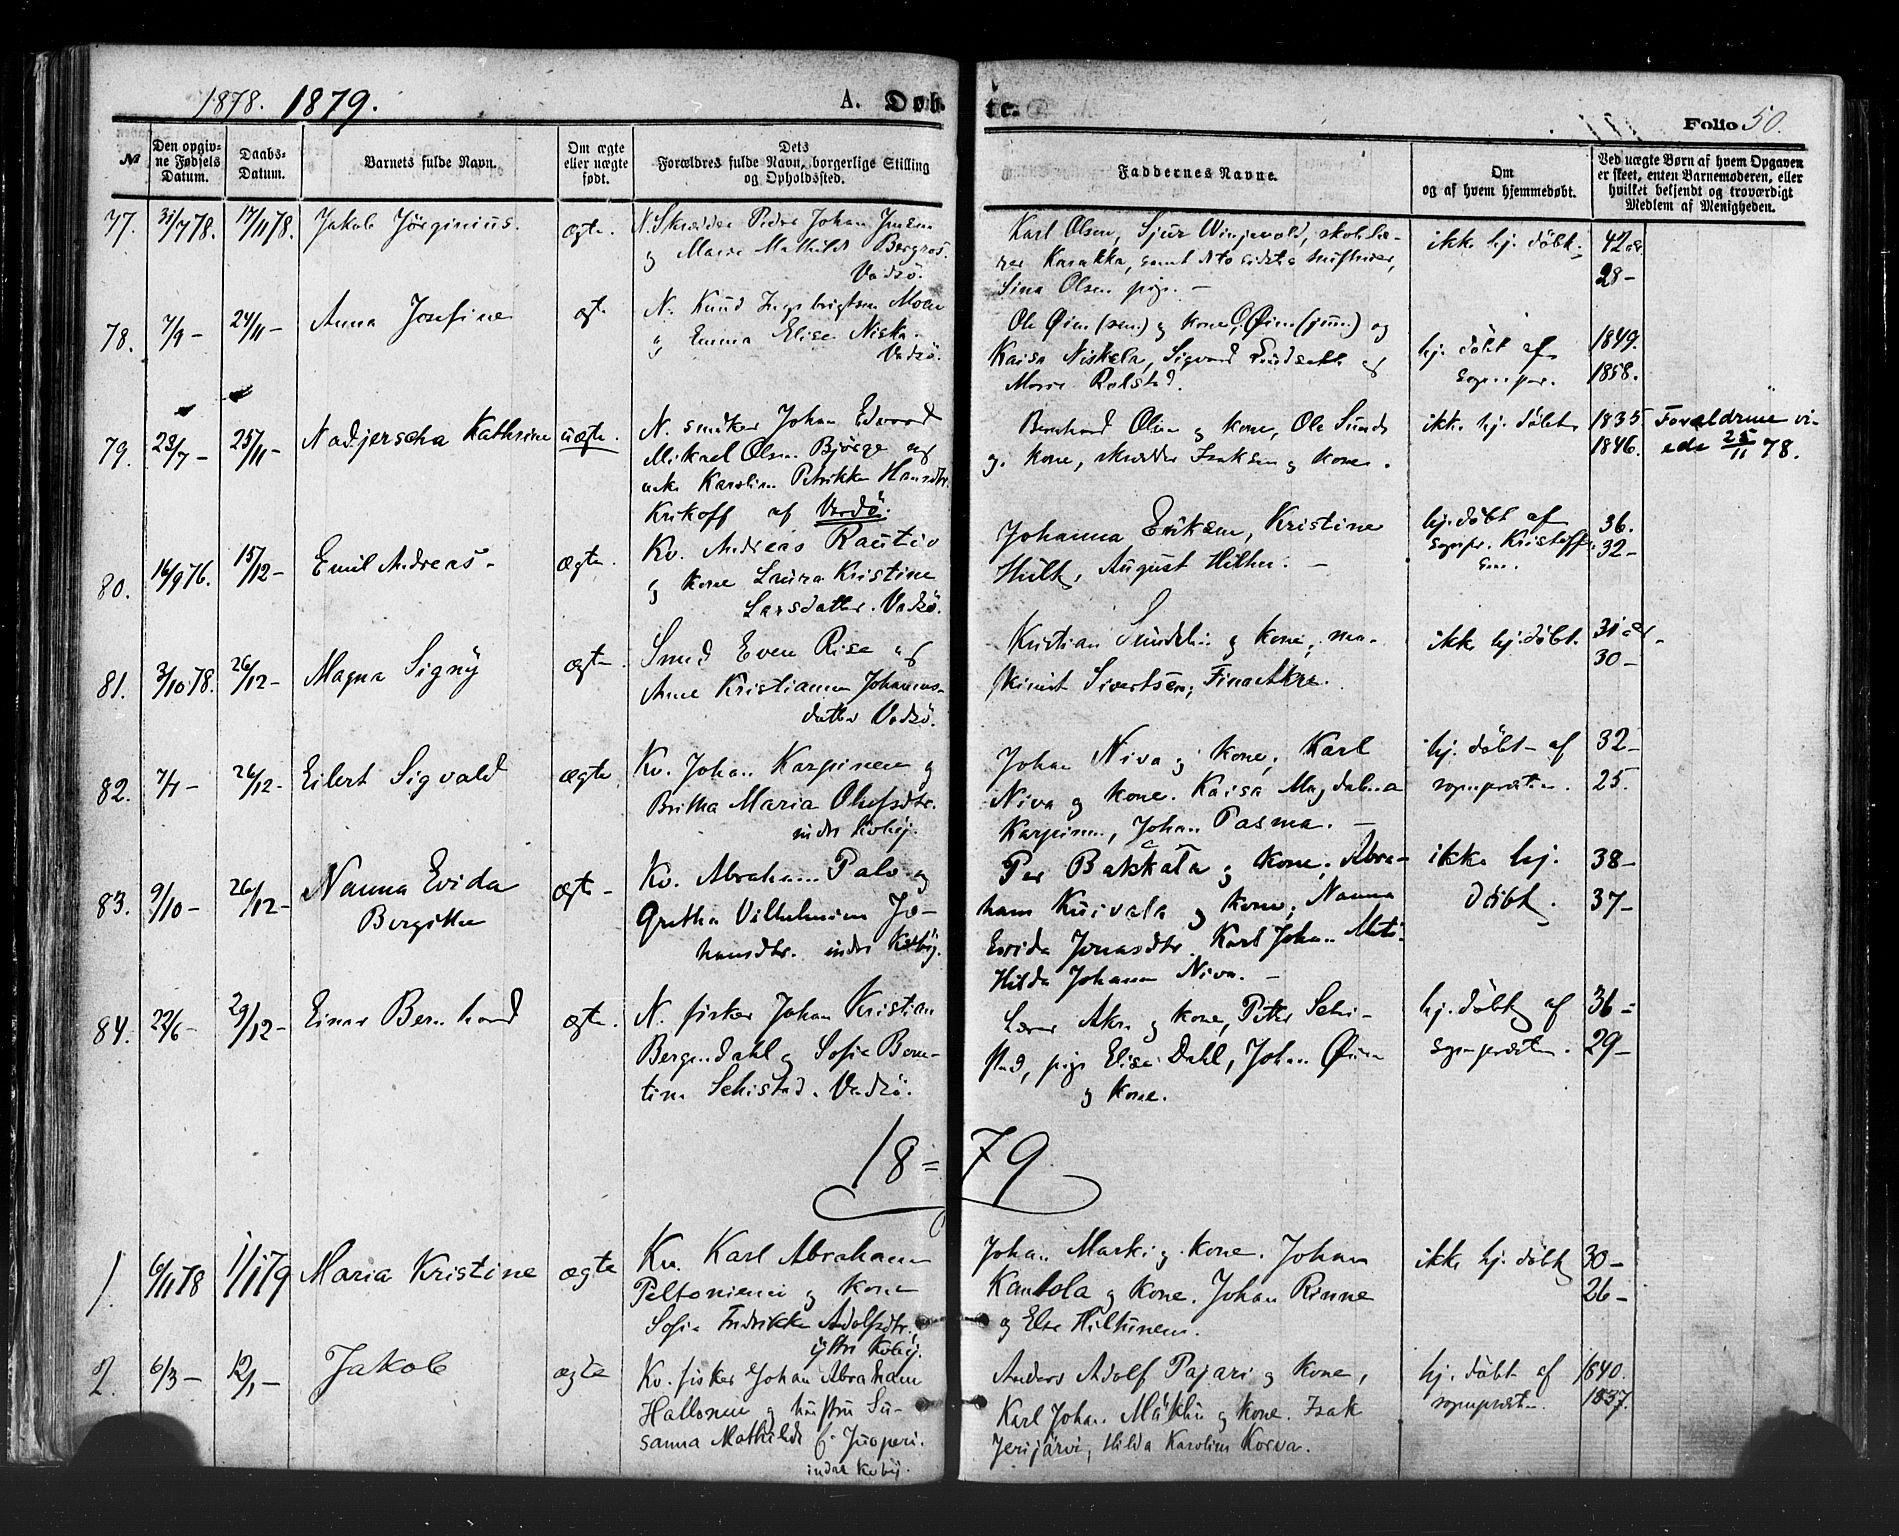 1878. 1879.
A. Døb-
te.
Folio 50.
№
Den opgiv-
ne Fødsels
Datum.
Daabs-
Datum.
Barnets fulde Navn.
Om ægte
eller uægte
født.
Dets
Forældres fulde Navn, borgerlige Stilling
og Opholdssted.
Faddernes Navne.
Om
og af hvem hjemmedøbt.
Ved uægte Børn af hvem Opgaven
er skeet, enten Barnemoderen, eller
hvilket bekjendt og troværdigt
Medlem af Menigheden.
77. 31/7 78. 17/11 78. Jakob Jørginius. ægte.
N. Skrædder Peder Johan Jensen
og Marie Mathilde Bergros.
Vadsö.
Karl Olsen, Sjur Winjevold, skolelæ-
rer Karakka, samt
Sina Olsen pige. –
ikke hj. döbt.
42 aar
28 –
78. 7/9 – 24/11 – Anna Josefine ægte
N. Knud Ingebrigtsen Moen
og Emma Elise Niska.
Vadsö.
Ole Øien (sen.) og kone, O. Øien (jun.) og
Kaisa Niskala, Sigvard Lundsett og
Marie Rolstad.
hj. döbt af
sognepr.
1849.
1858.
79. 28/7 – 25/11 – Nadjerscha Kathrine uægte.
N. snedker Johan Edvard
Mikael Olsen Bjørge og
enke Karolina Petrikke Hansdtr.
Krikoff af Vardö.
Bernhard Olsen og kone, Ole Sunds
og kone, skrædder Isaksen og kone.
ikke hj. döbt
1835
1846.
Forældrene vi-
ede 25/11 78.
80. 16/9 76. 15/12 – Emil Andreas – ægte.
Kv. Andreas Rautio
og kone Laura Kristine
Larsdatter. Vadsö.
Johanna Eriksen, Kristine
Hult, August Hilthu. –
hj. döbt af
sognepr. Kristoff-
sen.
36.
32 –
81. 3/10 78. 26/12 – Magna Signy ægte
Smed Even Rise og
Anne Kristianna Johannes-
datter Vadsö.
Kristian Sundelin og kone, ma-
skinist Sivertsen, Fina Akre.
ikke hj. döbt.
31 aar
30 –
82. 7/1 – 26/12 – Eilert Sigvald ægte
Kv. Johan Karpinen og
Britha Maria Olufsdtr.
indre Kvby.
Johan Niva og kone, Karl
Niva og kone. Kaisa Magdalena
Karpinen, Johan Pasma. –
hj. döbt af
sognepræsten.
32 –
25.
83. 9/10 – 26/12 – Nanna Evida
Bergitha
ægte –
Kv. Abraham Palo og
Gretha Vilhelmina Jo-
hansdtr. indre Kvby.
Per Bakkala og kone, Abra-
ham Kuivala og kone, Nanna
Evida Jonasdtr. Karl Johan Mati.
Hilda Johanna Niva. –
ikke hj.
döbt.
38 –
37 –
84. 22/6 – 29/12 – Einar Bernhard ægte.
N. fisker Johan Kristian
Bergendahl og Sofie Bern-
tine Schistad. Vadsö.
Lærer Akre og kone, Peter Schi-
stad, pige Elisa Dahl, Johan Øien
og kone.
hj. döbt af
sognepræsten.
36 –
29 –
18 = 79
1. 6/11 78 1/1 79 Maria Kristine ægte
Kv. Karl Abraham
Peltoniemi og kone
Sofia Fredrikke Adolfsdtr.
ytre Kvby.
Johan Marki og kone. Johan
Kantola og kone. Johan Rinne
og Elsa Hiltunen.
ikke hj. döbt
30 –
26 –
2. 6/3 – 12/1 – Jakob ægte
Kv. fisker Johan Abraham
Hallonen og hustru Su-
sanna Mathilde f. Juoperi.
indre Kvby.
Anders Adolf Pajari og kone,
Karl Johan Mäkkin og kone. Isak
Jerijärvi, Hilda Karolina Korva.
hj. döbt af
sognepræsten.
1840.
1837.